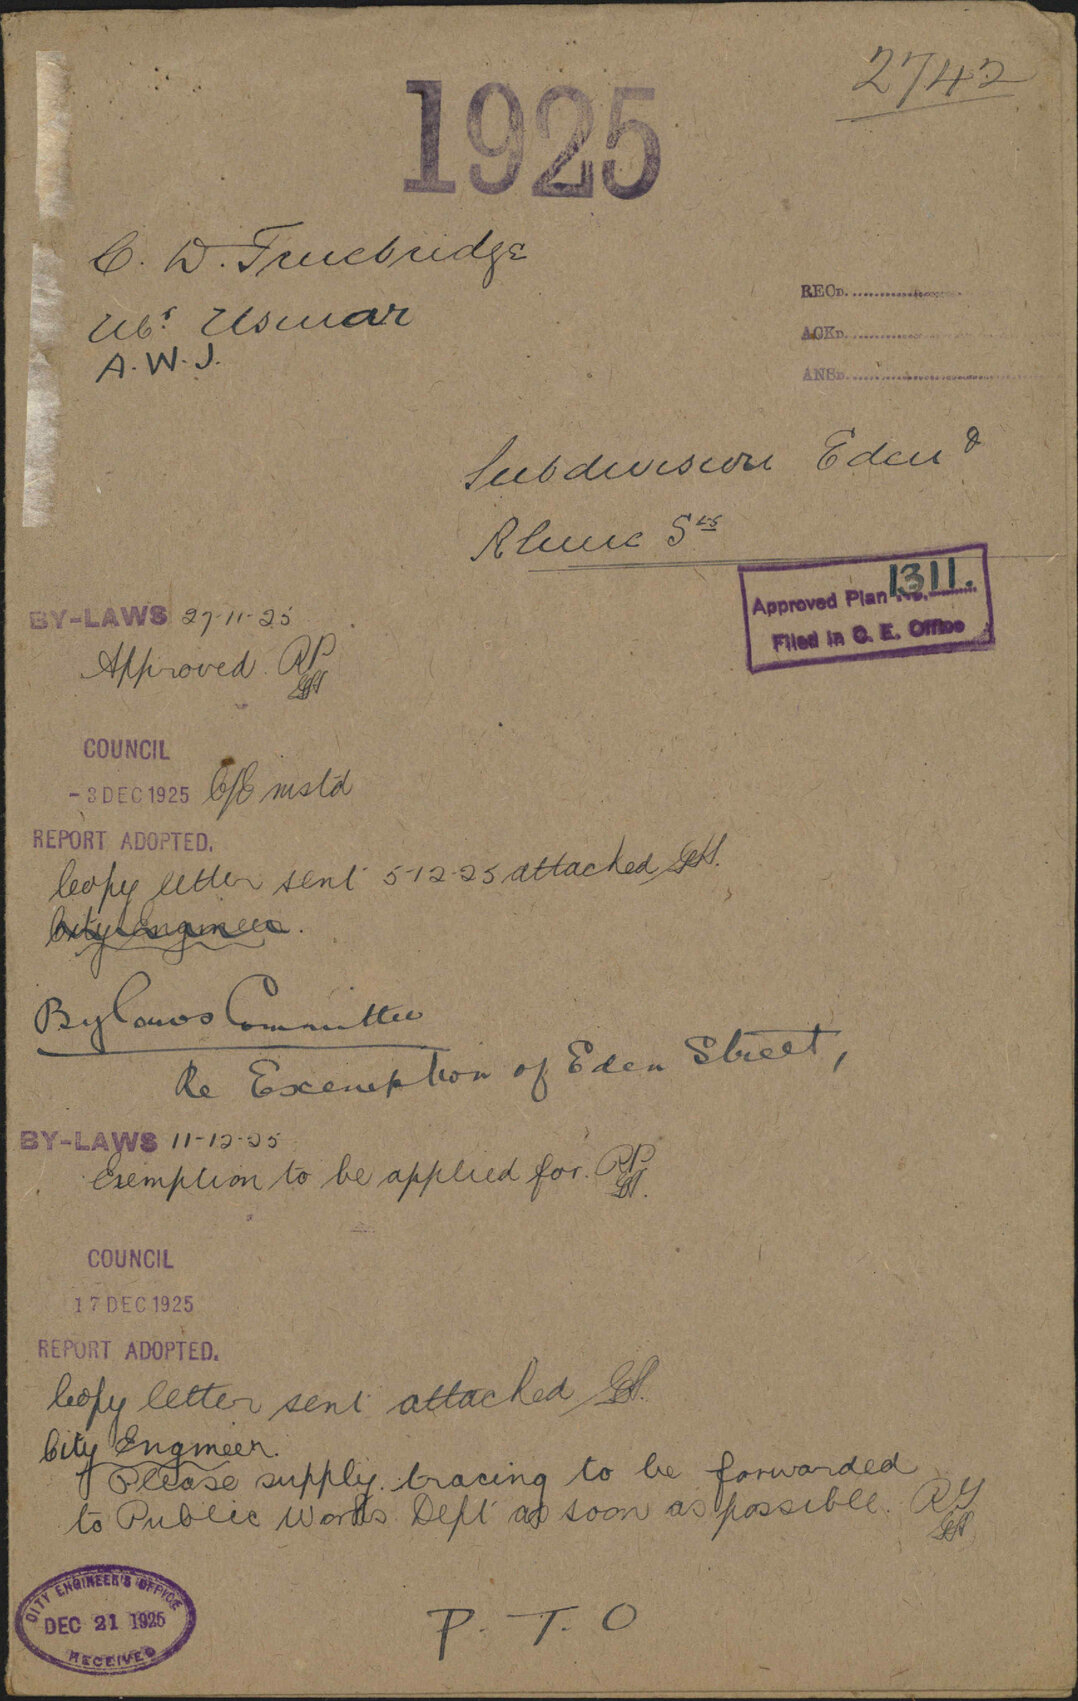 2742
1925
C. W. Truebridge
Mr. Usmar
A.W.J.
RECD.
ACKD.
ANSD.
Subdivision Eden &
Rhine Sts
1311.
Approved Plan No.
Filed in C. E. Office
BY-LAWS 27-11-25
Approved RP
COUNCIL
-3 DEC 1925 C/E instd
REPORT ADOPTED.
Copy letter sent 5-12-25 attached
City Engineer.
By Laws Committee
Re Exemption of Eden Street,
BY-LAWS 11-12-25
Exemption to be applied for. RP
COUNCIL
17 DEC 1925
REPORT ADOPTED.
Copy letter sent attached
City Engineer.
Please supply tracing to be forwarded
to Public Works Dept as soon as possible.
CITY ENGINEER'S OFFICE
DEC 21 1925
RECEIVED
P. T. O